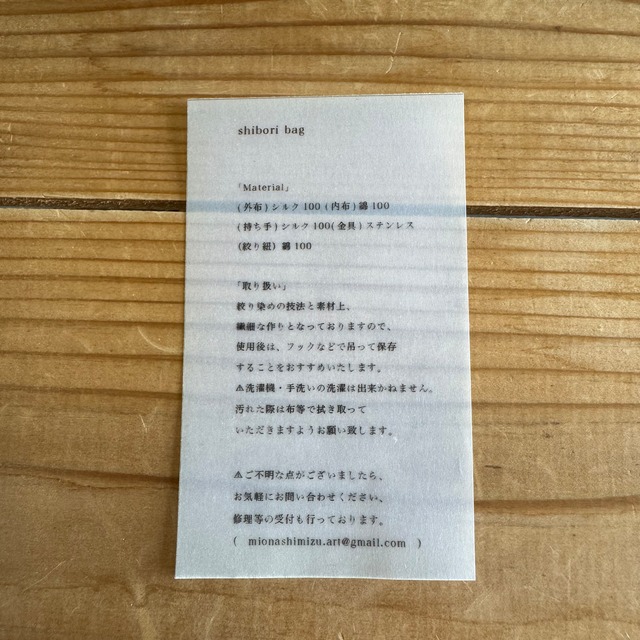 shibori bag
「Material」
(外布)シルク100(内布)綿100
(持ち手)シルク100(金具)ステンレス
(絞り紐) 綿100
「取り扱い」
絞り染めの技法と素材上、
繊細な作りとなっておりますので、
使用後は、フックなどで吊って保存
することをおすすめいたします。
⚠洗濯機・手洗いの洗濯は出来かねません。
汚れた際は布等で拭き取って
いただきますようお願い致します。
⚠ご不明な点がございましたら、
お気軽にお問い合わせください、
修理等の受付も行っております。
( mionashimizu.art@gmail.com )